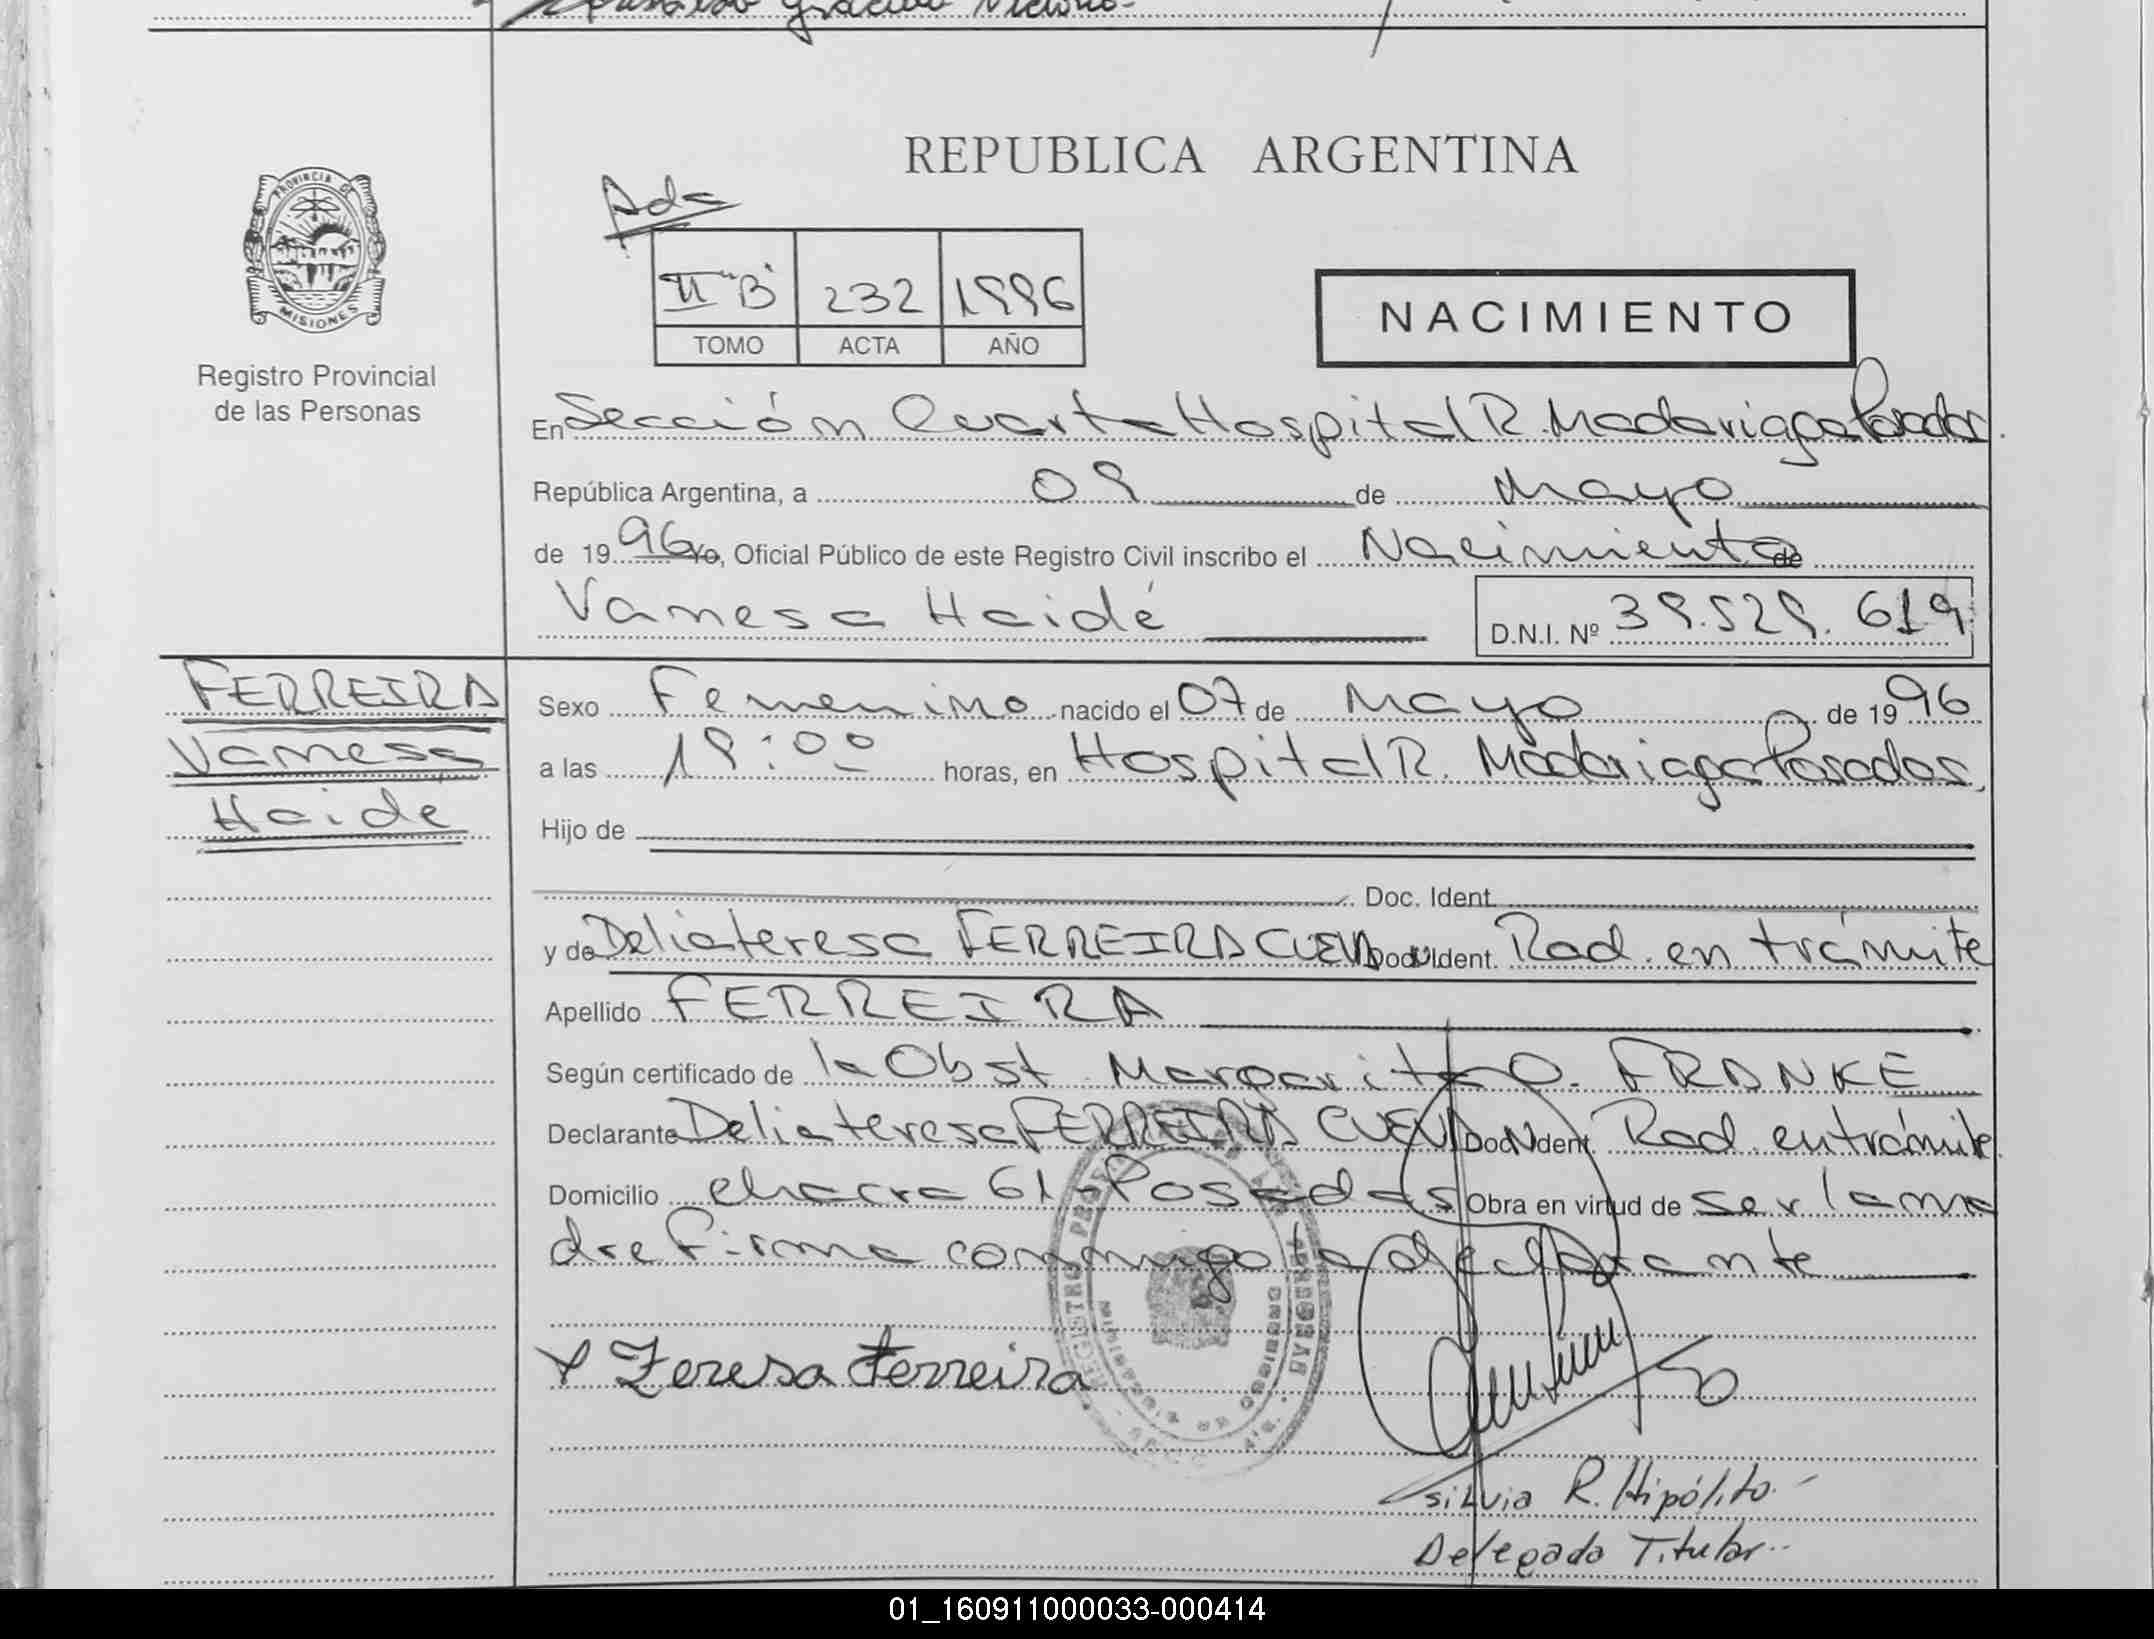 REPUBLICA ARGENTINA
PROVINCIA DE
MISIONES
Registro Provincial
de las Personas
Ads
II "B" 232 1996
TOMO ACTA AÑO
NACIMIENTO
En Sección Cuarta Hospital R. Madariaga Posadas.
República Argentina, a 09 de Mayo
de 1996 Yo, Oficial Público de este Registro Civil inscribo el Nacimiento de
Vanesa Haidé
D.N.I. Nº 39.529.619
FERREIRA
Vanesa
Haide
Sexo Femenino nacido el 07 de Mayo de 1996
a las 19:00 horas, en Hospital R. Madariaga Posadas.
Hijo de
Doc. Ident.
y de Deliateresa FERREIRA Doc. Ident. Rad. en trámite
Apellido FERREIRA
Según certificado de la Obst. Margarita O. FRANKE
Declarante Deliateresa FERREIRA Doc. Ident. Rad. en trámite.
Domicilio chacra 61 - Posadas Obra en virtud de ser la ma
dre firma conmigo la declarante
x Teresa Ferreira
Silvia R. Hipólito
Delegada Titular
01_160911000033-000414